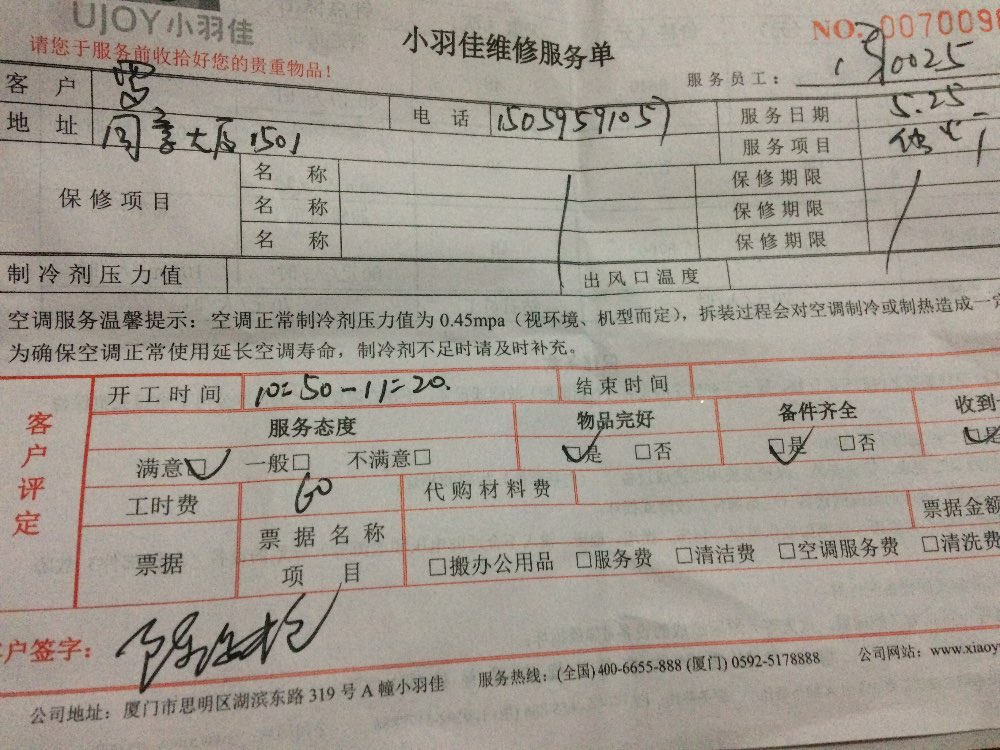 UJOY小羽佳
请您于服务前收拾好您的贵重物品！
小羽佳维修服务单
NO. 0070098
服务员工： 0025
客户
电话 15059591057 服务日期 5.25
地址 大厦1501 服务项目
保修项目 名称 保修期限
名称 保修期限
名称 保修期限
制冷剂压力值 出风口温度
空调服务温馨提示：空调正常制冷剂压力值为 0.45mpa（视环境、机型而定），拆装过程会对空调制冷或制热造成一
为确保空调正常使用延长空调寿命，制冷剂不足时请及时补充。
客户评定
开工时间 10:50-11:20. 结束时间
服务态度 物品完好 备件齐全 收到
满意□ 一般□ 不满意□ □是 □否 □是 □否 □是
工时费 60 代购材料费
票据 票据名称 票据金额
项目 □搬办公用品 □服务费 □清洁费 □空调服务费 □清洗费
客户签字：
公司地址：厦门市思明区湖滨东路 319 号 A 幢小羽佳 服务热线：(全国)400-6655-888 (厦门) 0592-5178888 公司网站：www.xiaoy